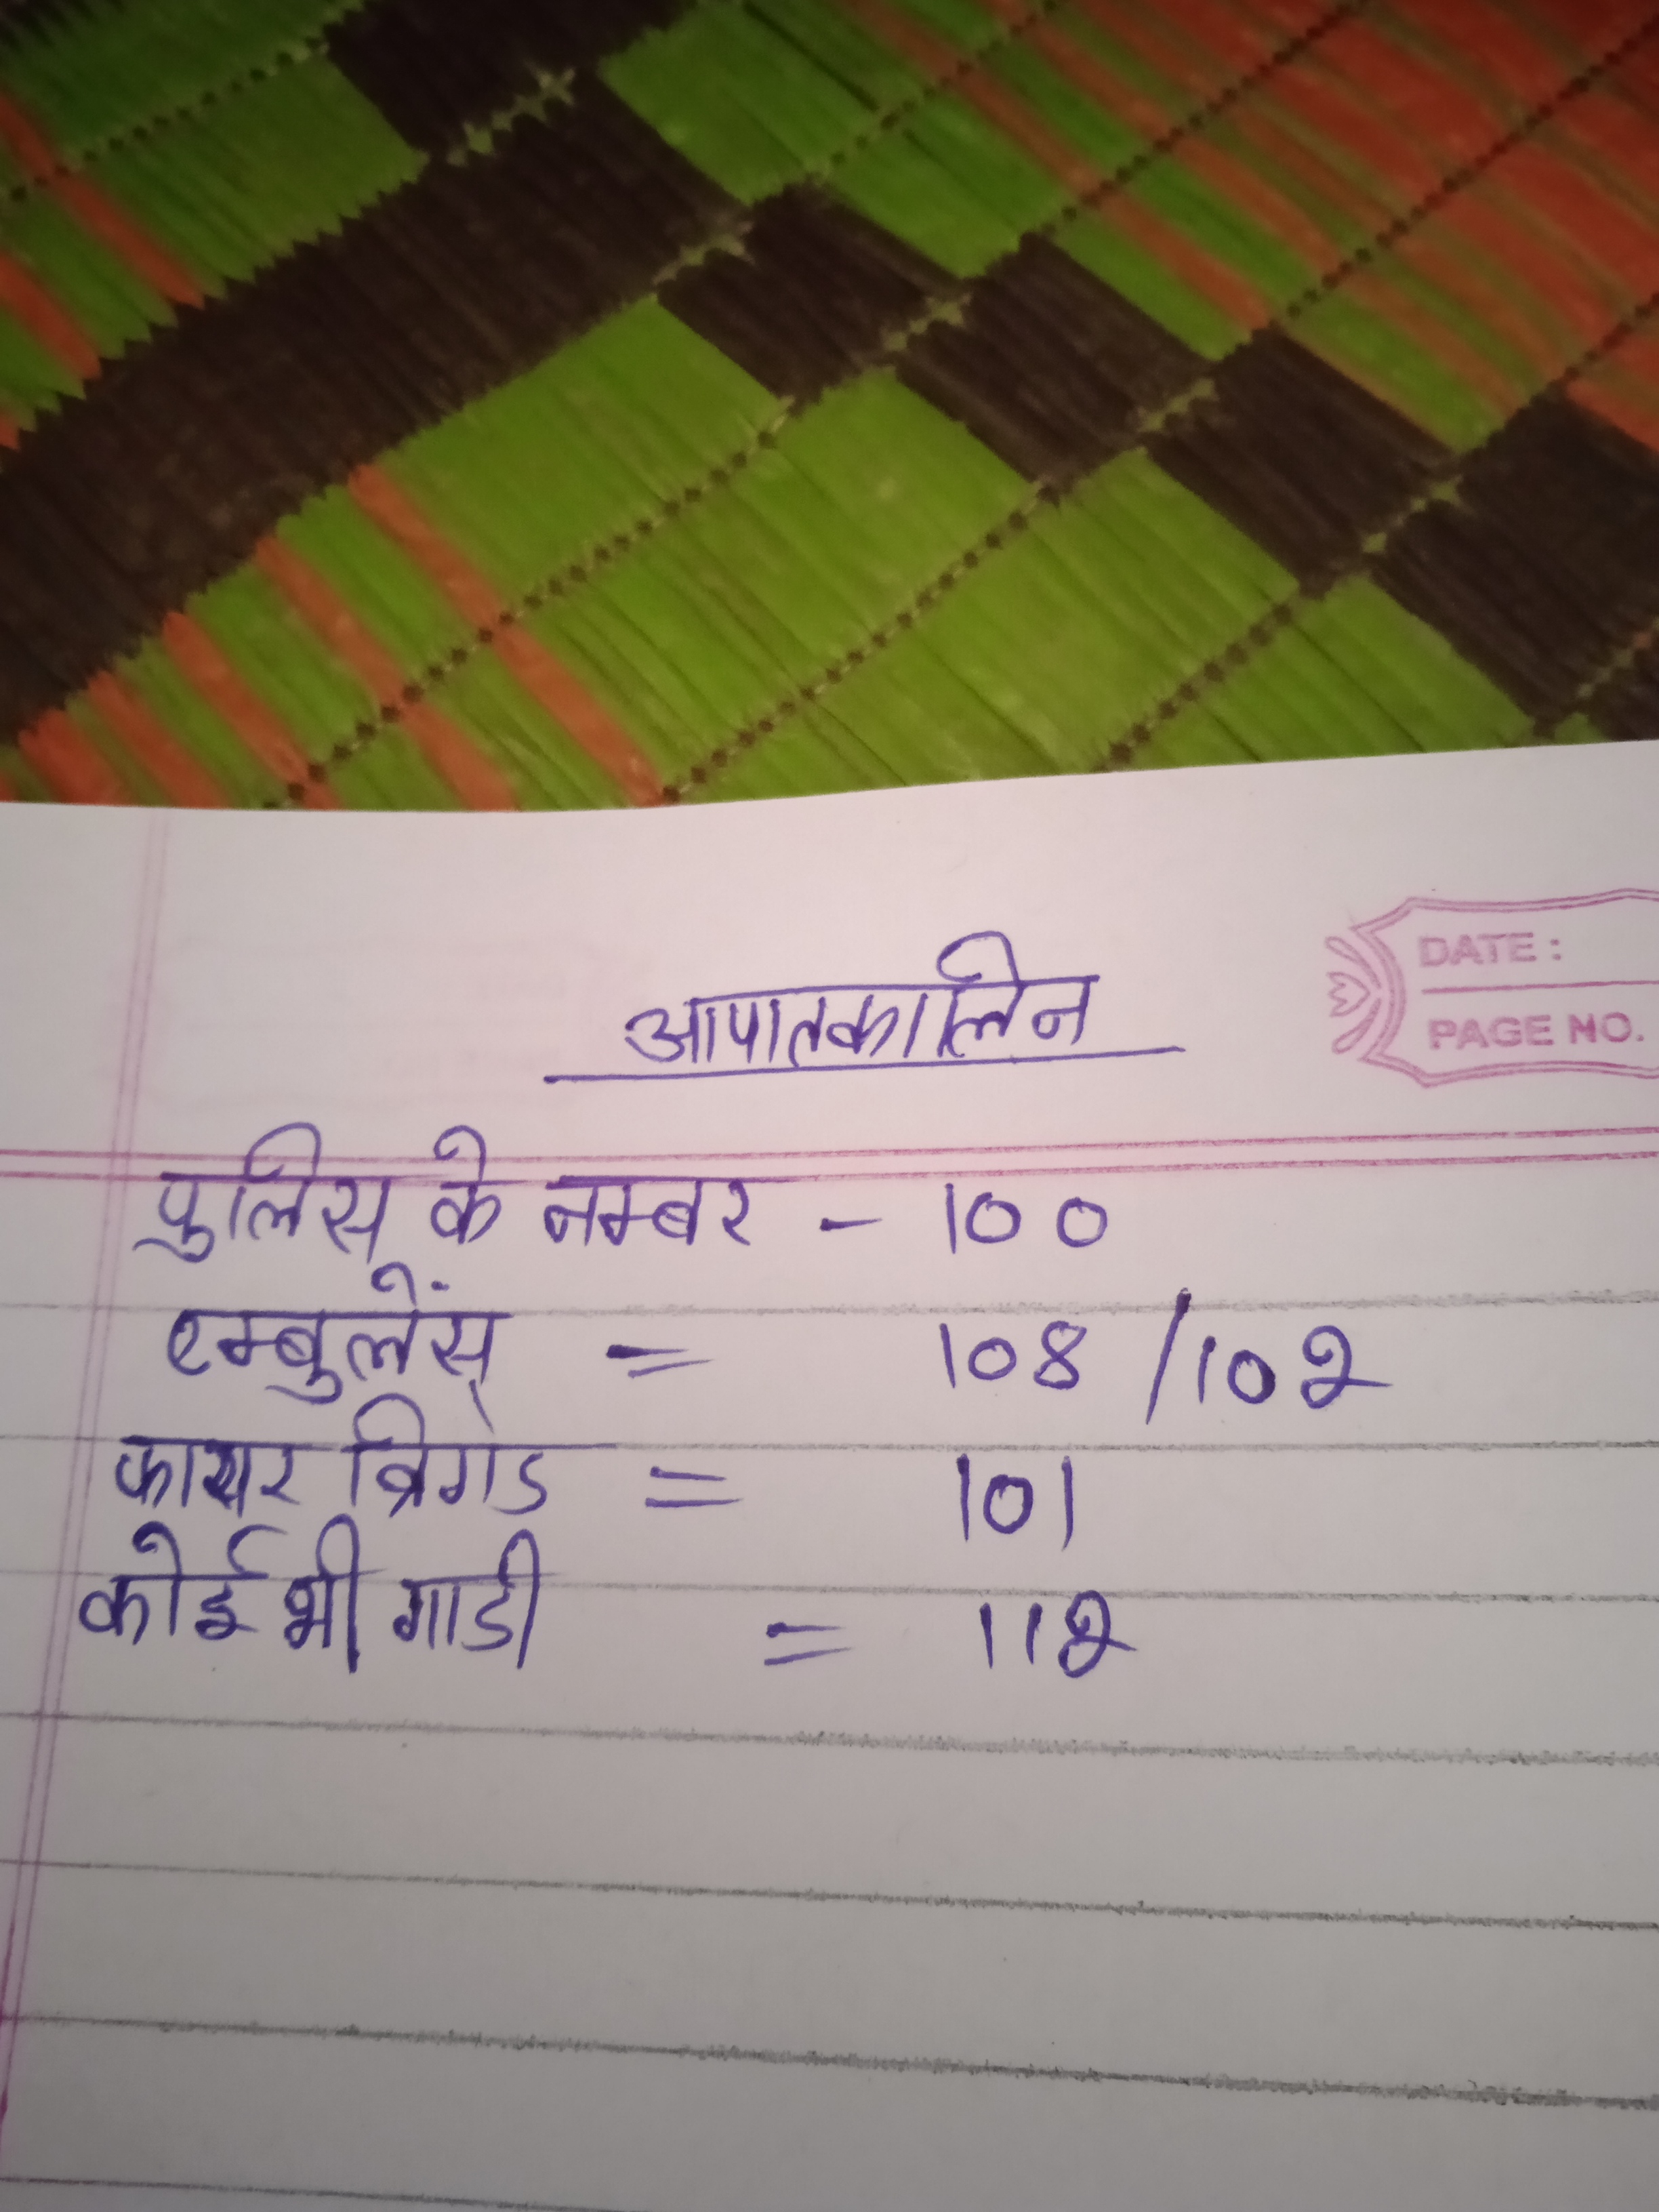 आपातकालिन
DATE :
PAGE NO.
पुलिस के नम्बर - 100
एम्बुलेंस = 108 / 102
फायर ब्रिगेड = 101
कोई भी गाडी = 112